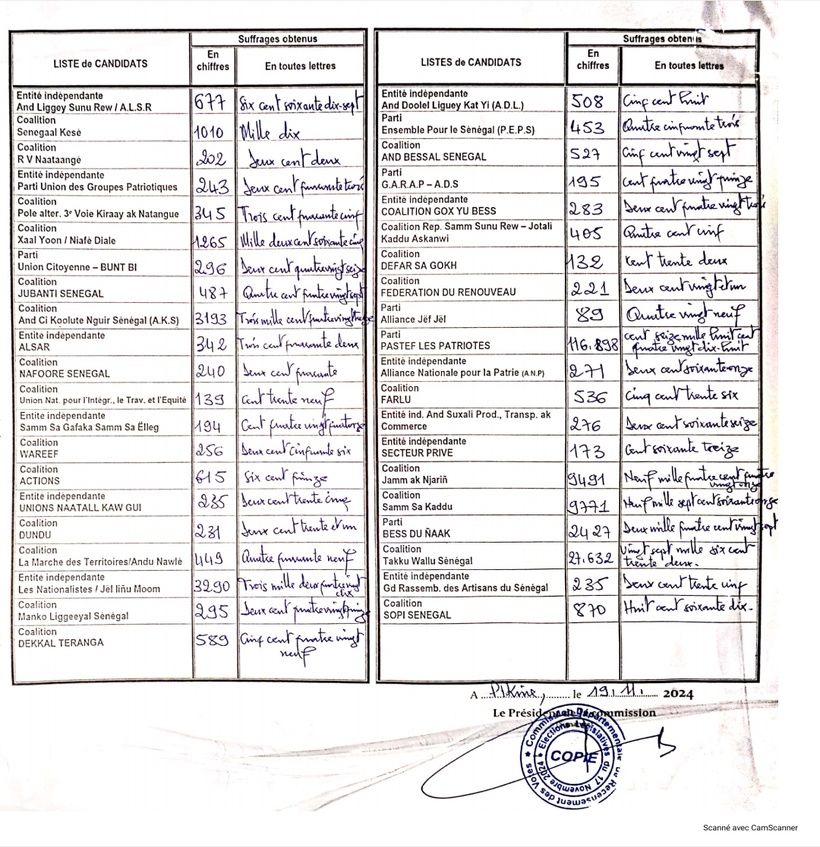 Suffrages obtenus
LISTE de CANDIDATS
En chiffres
En toutes lettres
Entité indépendante
And Liggey Sunu Rew / A.L.S.R
677
Six cent soixante dix-sept
Coalition
Senegaal Kesé
1010
Mille dix
Coalition
R V Naataangé
202
Deux cent deux
Entité indépendante
Parti Union des Groupes Patriotiques
243
Deux cent quarante trois
Coalition
Pole alter. 3e Voie Kiraay ak Natangue
345
Trois cent quarante cinq
Coalition
Xaal Yoon / Niafé Diale
1265
Mille deux cent soixante cinq
Parti
Union Citoyenne – BUNT BI
296
Deux cent quatre vingt seize
Coalition
JUBANTI SENEGAL
487
Quatre cent quatre vingt sept
Coalition
And Ci Koolute Nguir Sénégal (A.K.S)
3193
Trois mille cent quatre vingt treize
Entité indépendante
ALSAR
342
Trois cent quarante deux
Coalition
NAFOORE SENEGAL
240
Deux cent quarante
Coalition
Union Nat. pour l'Intégr., le Trav. et l'Equité
139
Cent trente neuf
Entité indépendante
Samm Sa Gafaka Samm Sa Ëlleg
194
Cent quatre vingt quatorze
Coalition
WAREEF
256
Deux cent cinquante six
Coalition
ACTIONS
615
Six cent quinze
Entité indépendante
UNIONS NAATALL KAW GUI
235
Deux cent trente cinq
Coalition
DUNDU
231
Deux cent trente et un
Coalition
La Marche des Territoires/Andu Nawlé
449
Quatre quarante neuf
Entité indépendante
Les Nationalistes / Jël liñu Moom
3290
Trois mille deux quatre vingt dix
Coalition
Manko Liggeeyal Sénégal
295
Deux cent quatre vingt quinze
Coalition
DEKKAL TERANGA
589
Cinq cent quatre vingt
neuf
Suffrages obtenus
LISTES de CANDIDATS
En chiffres
En toutes lettres
Entité indépendante
And Doolel Liguey Kat Yi (A.D.L.)
508
Cinq cent huit
Parti
Ensemble Pour le Sénégal (P.E.P.S)
453
Quatre cinquante trois
Coalition
AND BESSAL SENEGAL
527
Cinq cent vingt sept
Parti
G.A.R.A.P – A.D.S
195
Cent quatre vingt quinze
Entité indépendante
COALITION GOX YU BESS
283
Deux cent quatre vingt trois
Coalition Rep. Samm Sunu Rew – Jotali
Kaddu Askanwi
405
Quatre cent cinq
Coalition
DEFAR SA GOKH
132
Cent trente deux
Coalition
FEDERATION DU RENOUVEAU
221
Deux cent vingt et un
Coalition
Alliance Jëf Jël
89
Quatre vingt neuf
Parti
PASTEF LES PATRIOTES
116.898
cent seize mille huit cent
quatre vingt dix-huit
Entité indépendante
Alliance Nationale pour la Patrie (A.N.P)
271
Deux cent soixante onze
Coalition
FARLU
536
Cinq cent trente six
Entité ind. And Suxali Prod., Transp. ak
Commerce
276
Deux cent soixante seize
Entité indépendante
SECTEUR PRIVE
173
Cent soixante treize
Coalition
Jamm ak Njariñ
9491
Neuf mille quatre cent quatre
vingt onze
Coalition
Samm Sa Kaddu
9771
Neuf mille sept cent soixante onze
Parti
BESS DU ÑAAK
2427
Deux mille quatre cent vingt sept
Coalition
Takku Wallu Sénégal
27.632
Vingt sept mille six cent
trente deux.
Entité indépendante
Gd Rassemb. des Artisans du Sénégal
235
Deux cent trente cinq
Coalition
SOPI SENEGAL
870
Huit cent soixante dix-
A Pikine, le 19.11. 2024
Le Président de la commission
Commission Départementale de Recensement des Votes
Elections Législatives du 17 Novembre 2024
COPIE
Scanné avec CamScanner